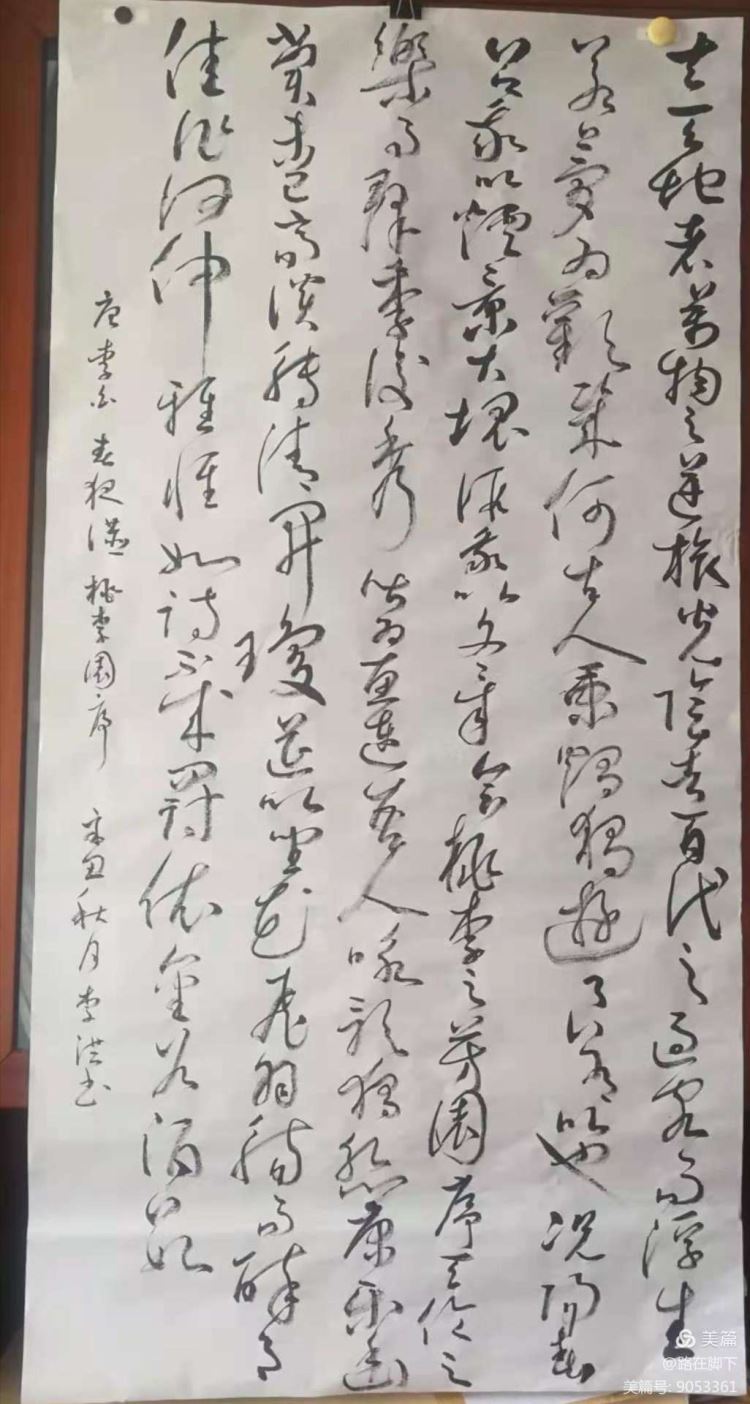 夫天地者萬物之逆旅光陰者百代之過客而浮生
若夢為歡幾何古人秉燭夜遊良有以也況陽春
召我以煙景大塊假我以文章會桃李之芳園序天倫之
樂事群季俊秀皆為惠連吾人詠歌獨慚康樂幽
賞未已高談轉清開瓊筵以坐花飛羽觴而醉月
佳作何伸雅懷如詩不成罰依金谷酒數
唐李白春夜宴桃李園序 辛丑秋月李洪書
美篇
@路在脚下
美篇号: 9053361